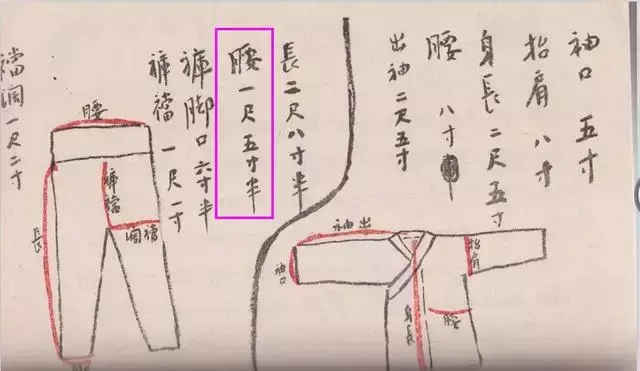 袖口 五寸
抬肩 八寸
身長 二尺五寸
腰 八寸
出袖 二尺五寸
長 二尺八寸半
腰 一尺五寸半
褲脚口 六寸半
褲襠 一尺一寸
襠闊 一尺二寸
袖出
袖口
抬肩
身長
腰
腰
褲襠
闊襠
長